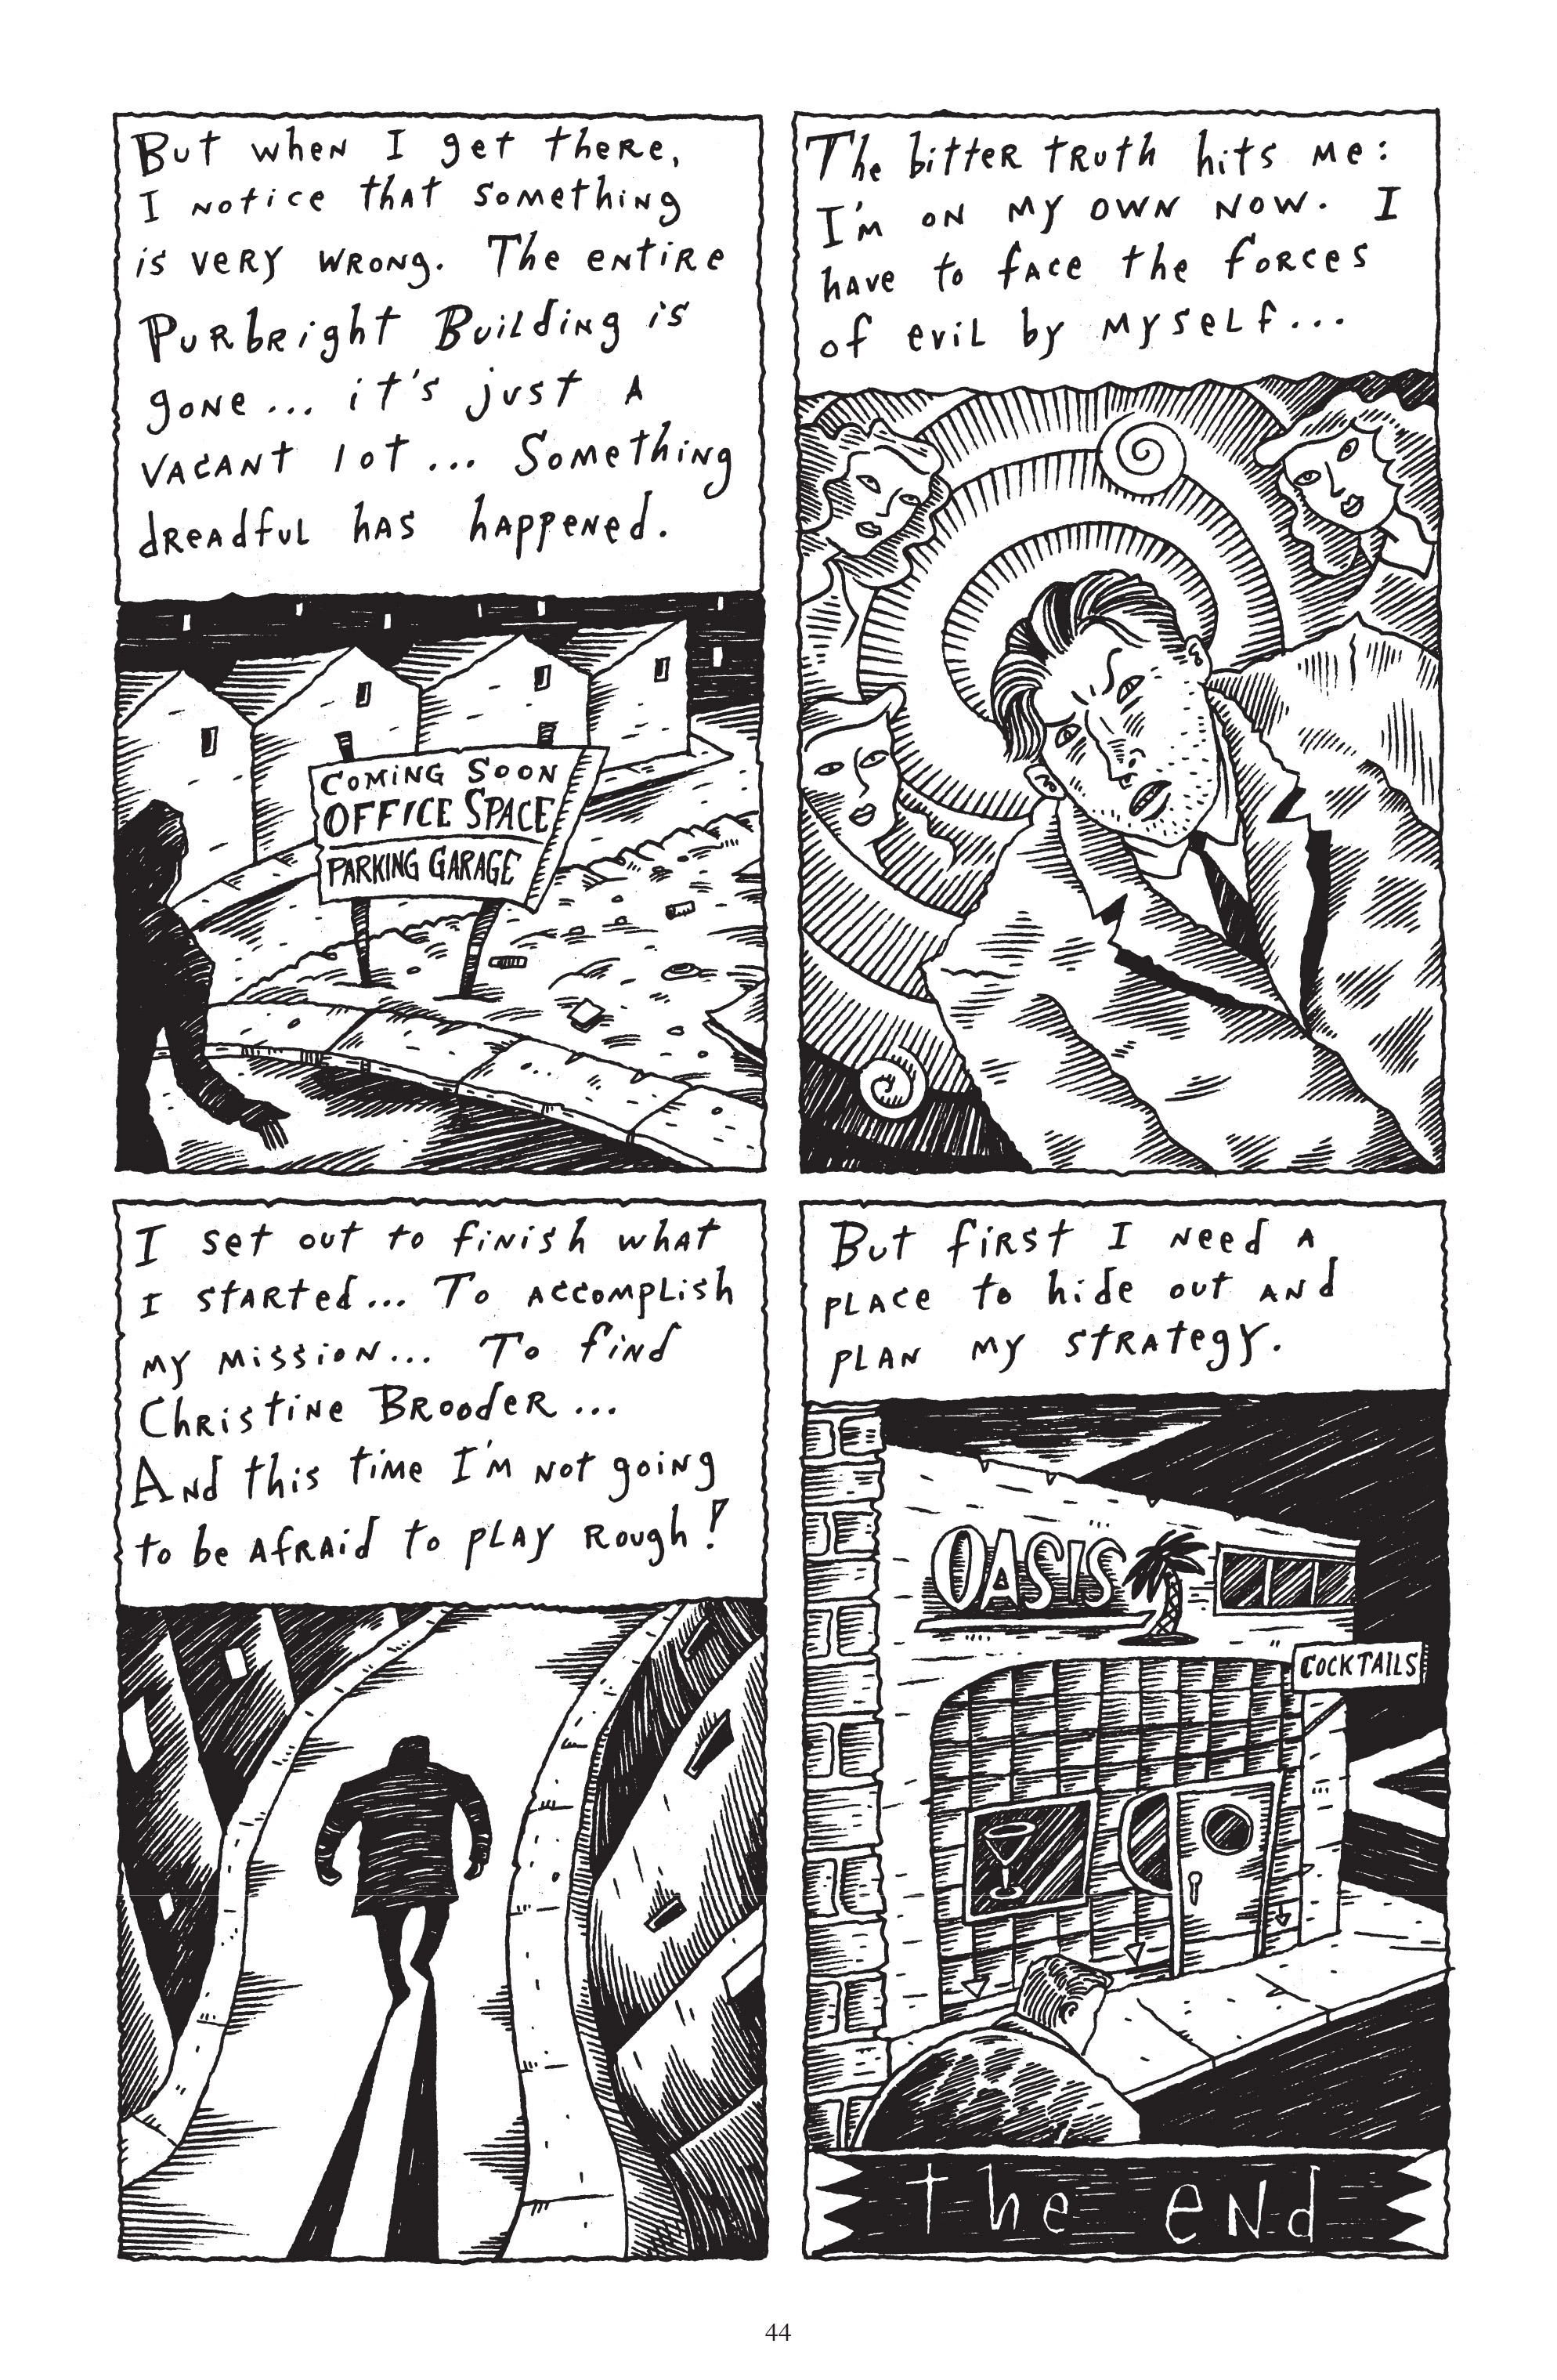 But when I get there,
I notice that something
is very wrong. The entire
Purbright Building is
gone... it's just a
vacant lot... Something
dreadful has happened.
COMING SOON
OFFICE SPACE
PARKING GARAGE
The bitter truth hits me:
I'm on my own now. I
have to face the forces
of evil by myself...
I set out to finish what
I started... To accomplish
my mission... To find
Christine Brooder...
And this time I'm not going
to be afraid to play rough!
But first I need a
place to hide out and
plan my strategy.
OASIS
COCKTAILS
the end
44